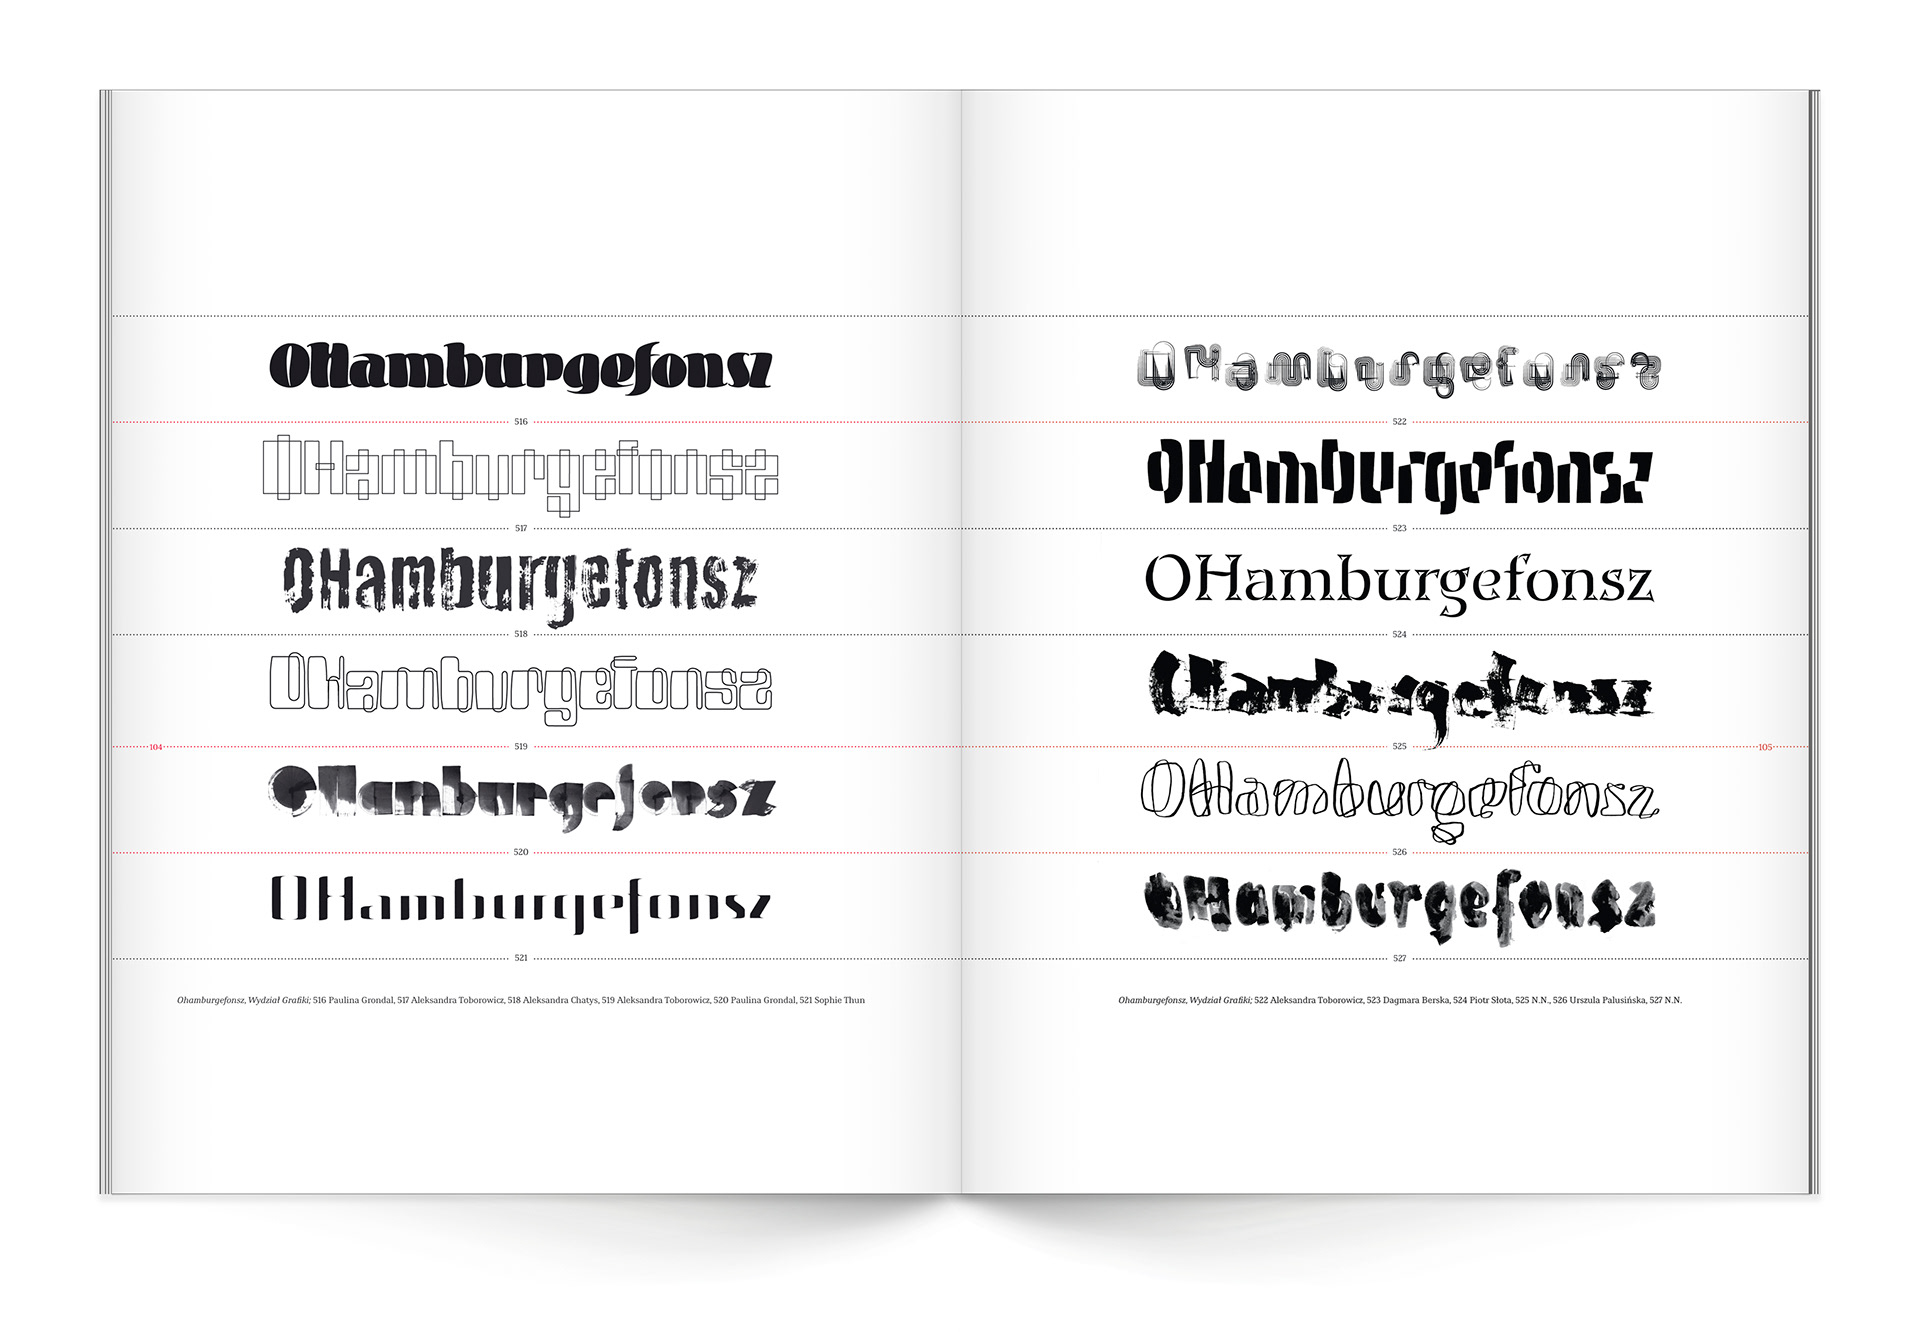 OHamburgefonsz
516
OHamburgefonsz
517
OHamburgefonsz
518
OHamburgefonsz
104
519
OHamburgefonsz
520
OHamburgefonsz
521
Ohamburgefonsz, Wydział Grafiki; 516 Paulina Grondal, 517 Aleksandra Toborowicz, 518 Aleksandra Chatys, 519 Aleksandra Toborowicz, 520 Paulina Grondal, 521 Sophie Thun
OHamburgefonsz
522
OHamburgefonsz
523
OHamburgefonsz
524
OHamburgefonsz
525
105
OHamburgefonsz
526
OHamburgefonsz
527
Ohamburgefonsz, Wydział Grafiki; 522 Aleksandra Toborowicz, 523 Dagmara Berska, 524 Piotr Słota, 525 N.N., 526 Urszula Palusińska, 527 N.N.